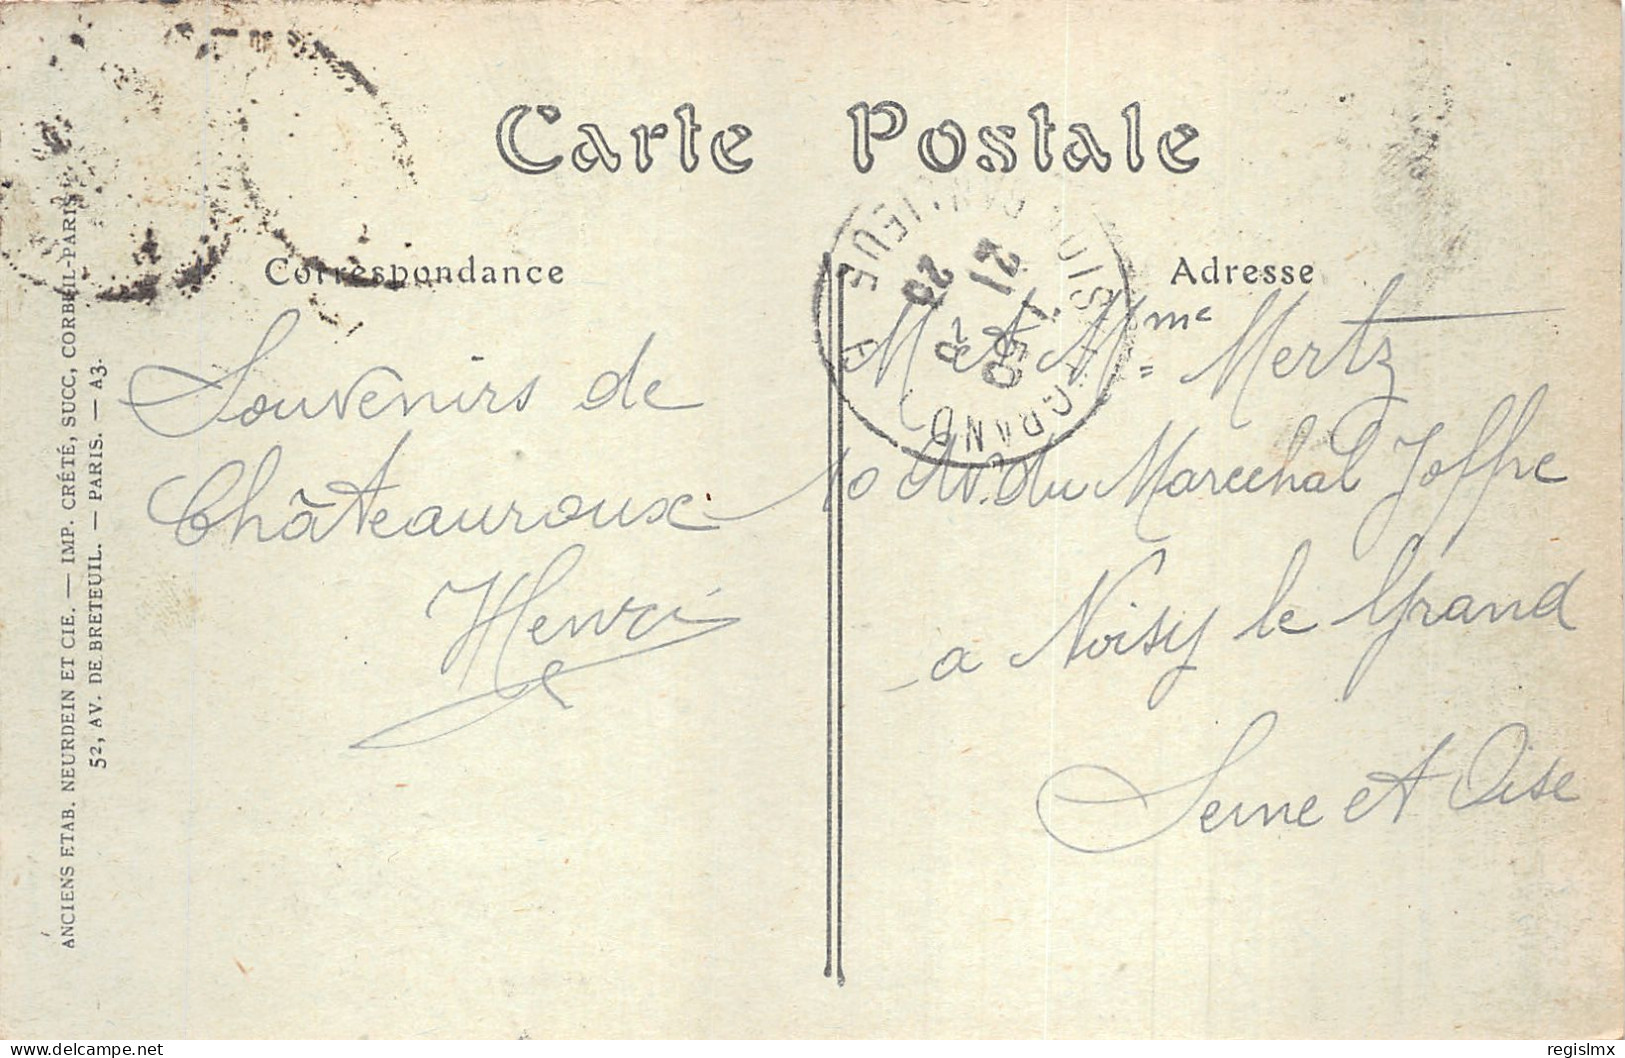 Carte Postale
Correspondance
Adresse
Souvenirs de
Châteauroux
Henri
M. et Mme Mertz
10 Av. du Marechal Joffre
a Noisy le Grand
Seine et Oise
ANCIENS ETAB. NEURDEIN ET CIE. — IMP. CRÉTÉ, SUCC, CORBEIL-PARIS
52, AV. DE BRETEUIL. — PARIS. — A3.
GRAND
delcampe.net
regislmx